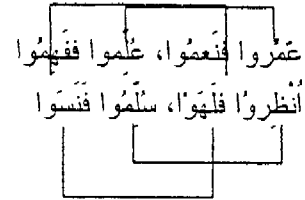 عَمَّرُوا فَنَعِمُوا، عُلِّموا ففَهِمُوا
أُنْظِرُوا فَلَهَوْا، سُلِّمُوا فَنَسَوا